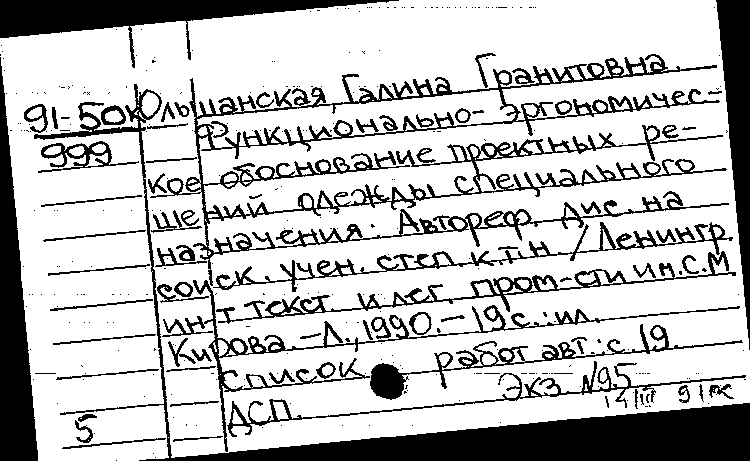 91-50к Ольшанская, Галина Гранитовна.
999 Функционально-эргономичес-
кое обоснование проектных ре-
шений одежды специального
назначения. Автореф. дис. на
соиск. учен. степ. к.т.н / Ленингр.
ин-т текст. и лег. пром-сти им. С.М.
Кирова. -Л., 1990. - 19 с. : ил.
Список работ авт.: с. 19.
ДСП. Экз №95
5 14/III 91